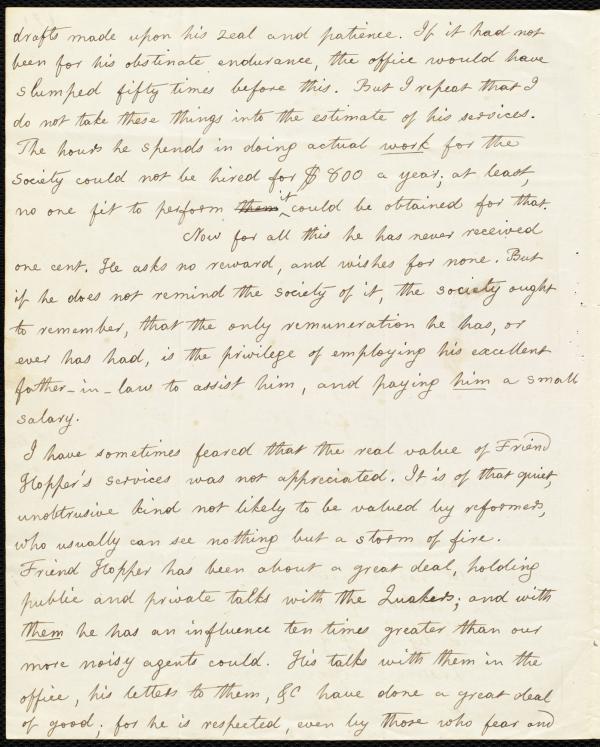 drafts made upon his zeal and patience. If it had not
been for his obstinate endurance, the office would have
slumped fifty times before this. But I repeat that I
do not take these things into the estimate of his services.
The hours he spends in doing actual work for the
Society could not be hired for $800 a year; at least,
no one fit to perform them it could be obtained for that.
Now for all this he has never received
one cent. He asks no reward, and wishes for none. But
if he does not remind the society of it, the society ought
to remember, that the only remuneration he has, or
ever has had, is the privilege of employing his excellent
father-in-law to assist him, and paying him a small
salary.
I have sometimes feared that the real value of Friend
Hopper's services was not appreciated. It is of that quiet,
unobtrusive kind not likely to be valued by reformers,
who usually can see nothing but a storm of fire.
Friend Hopper has been about a great deal, holding
public and private talks with the Quakers; and with
them he has an influence ten times greater than our
more noisy agents could. His talks with them in the
office, his letters to them, &c have done a great deal
of good; for he is respected, even by those who fear and